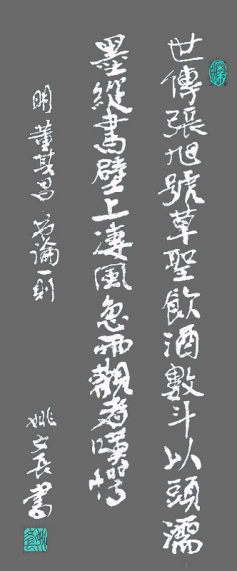 世傳張旭號草聖飲酒數斗以頭濡
墨縱書壁上淒風急雨觀者嘆愕
明 董其昌 書論一則
姚文長書